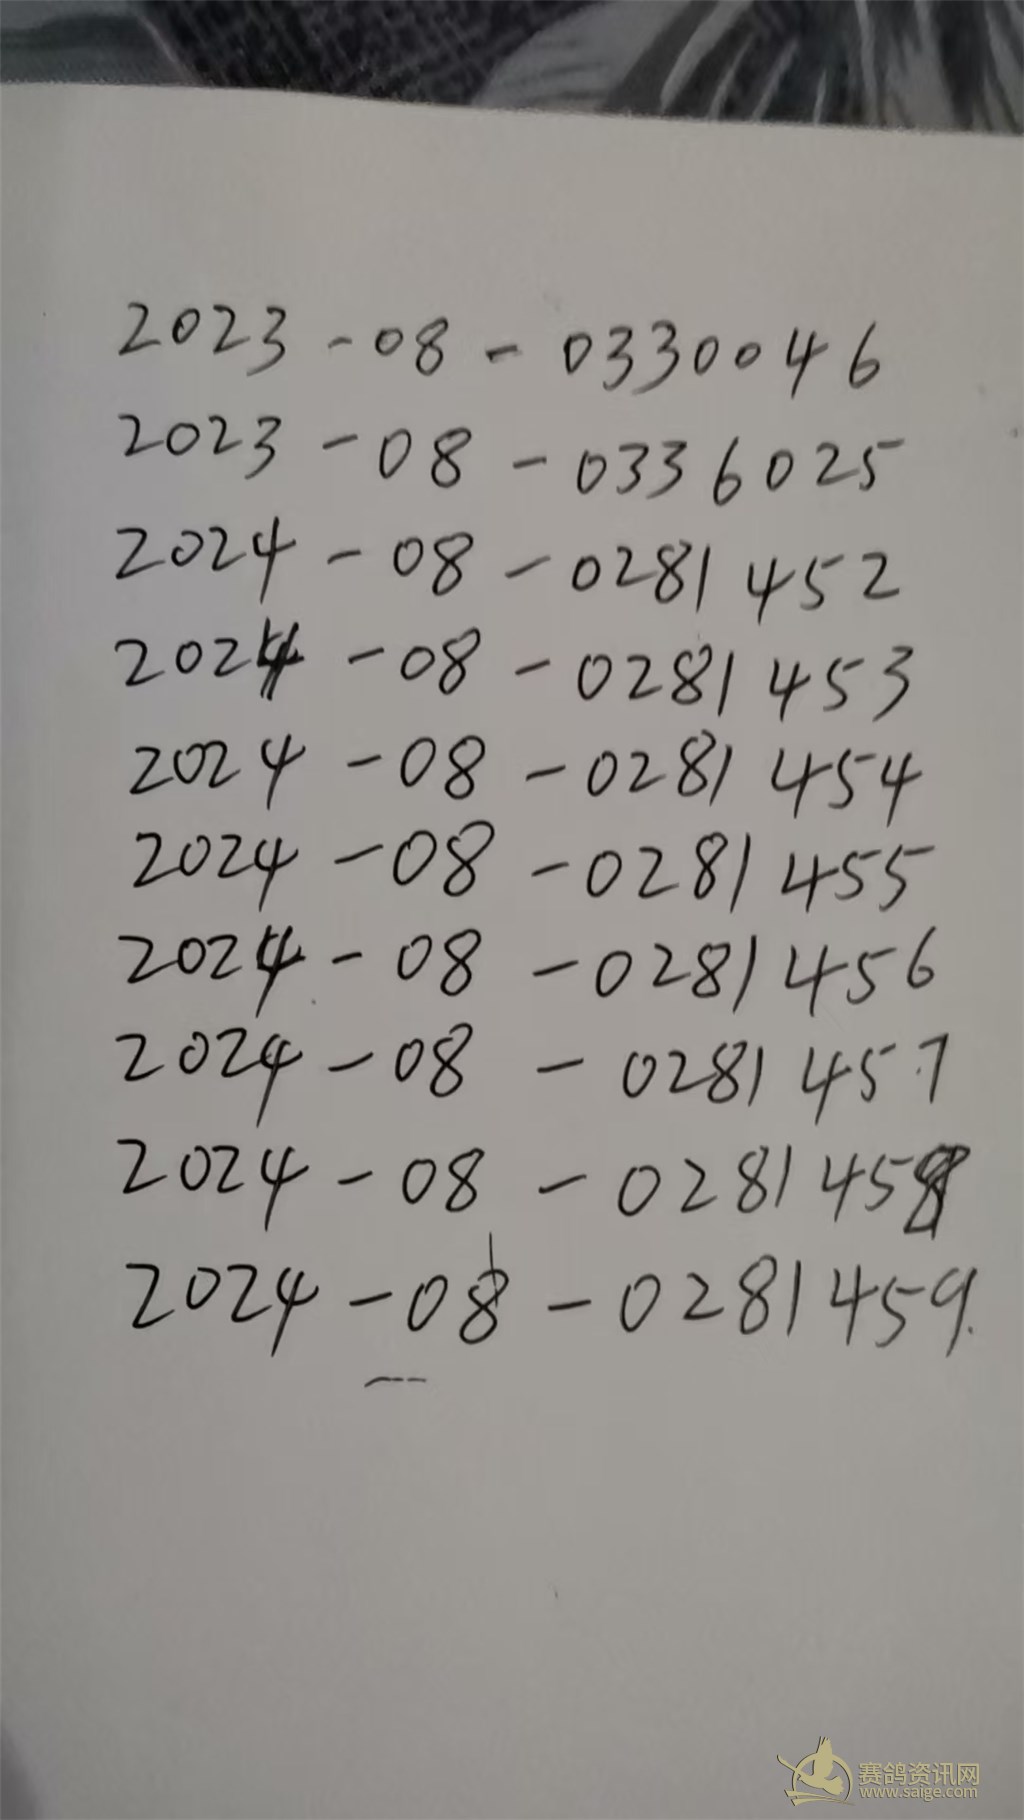 2023-08-0330046
2023-08-0336025
2024-08-0281452
2024-08-0281453
2024-08-0281454
2024-08-0281455
2024-08-0281456
2024-08-0281457
2024-08-0281458
2024-08-0281459.
赛鸽资讯网
www.saige.com